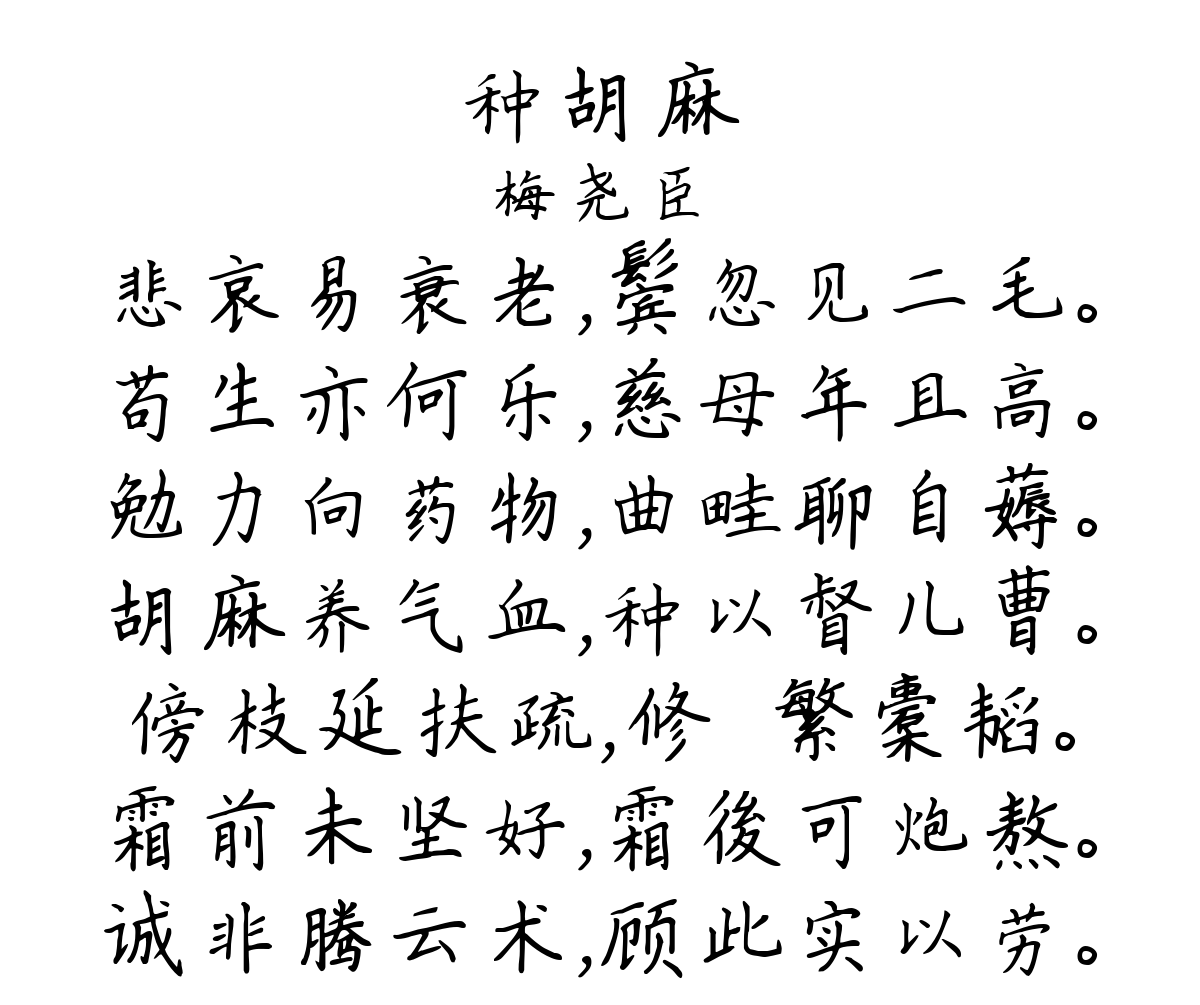 种胡麻
梅尧臣
悲哀易衰老,鬓忽见二毛。
苟生亦何乐,慈母年且高。
勉力向药物,曲畦聊自薅。
胡麻养气血,种以督儿曹。
傍枝延扶疏,修 繁橐韬。
霜前未坚好,霜後可炮熬。
诚非腾云术,顾此实以劳。